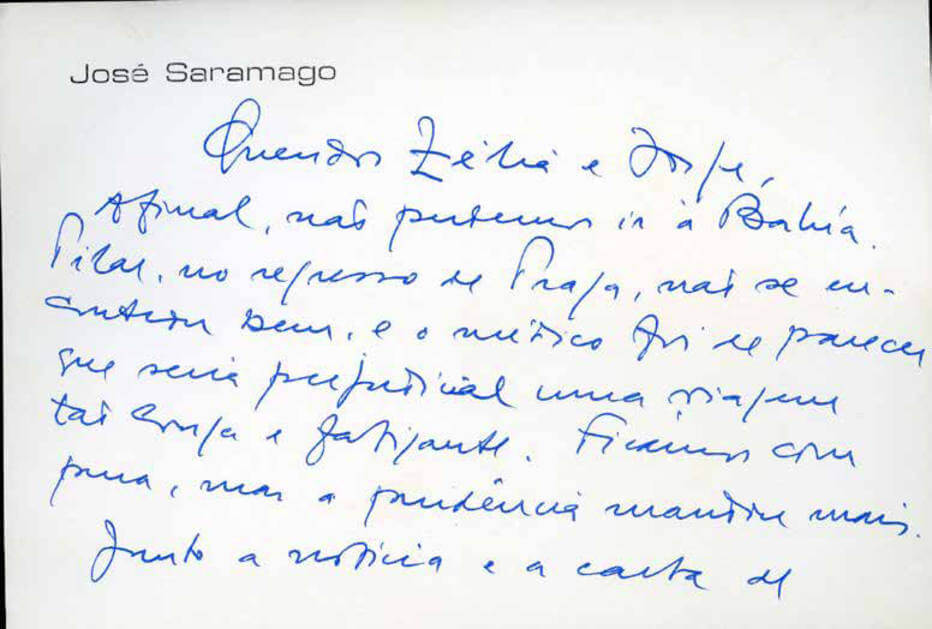 José Saramago
Queridos Zélia e Jorge,
Afinal, não pudemos ir à Bahía.
Pilar, no regresso de Praga, não se en-
controu bem, e o médico foi de parecer
que seria prejudicial uma viagem
tão longa e fatigante. Ficámos com
pena, mas a prudência mandou mais.
Junto a notícia e a carta de